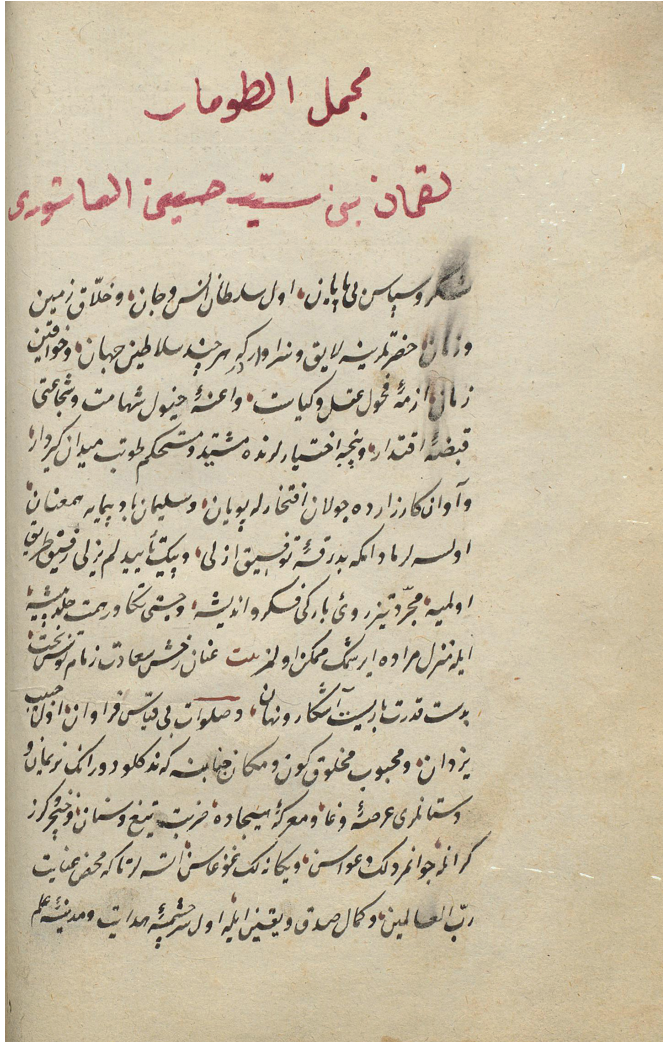 مجمل الطومار
لقمان بن سيّد حسين العاشورى
شكر و سپاس بى پايان اول سلطان انس و جان و خلّاق زمين
و زمان حضرتلرينه لايق و سزاواردركه هر چند سلاطين جهان و خواقين
زمان ازمهٔ فحول عقل و كياست و اعنهٔ خيول شهامت و شجاعتى
قبضهٔ اقتدار و پنجهٔ اختيارلرنده مشيّد و مستحكم طوتب ميدان كيردار
و آوان كارزارده جولان افتخارله پويان و سليمان باد پيمايه همعنان
اولسه لر مادامكه بدرقهٔ توفيق ازلى و پيك تأييد لم يزلى رفيق طريق
اولميه مجرّد تيزروئ باركى فكر و انديشه و چستى تكاور همت جلد پيشه
ايله منزل مراده ايرشمك ممكن اولمز بيت عنان رخش سعادت زمام توسن بخت
بدست قدرت باريست آشكار و نهان و صلوات بى قياس فراوان اول حبيب
يزدان و محبوب مخلوق كون و مكان جنابنه كه
دستانلرى عرصهٔ وغا و معركهٔ هيجاده ضربت تيغ و سنان و خنجر و كرز
كرانله جوانمردلك دعواسن و يكانه لك غوغاسن ايتسه لر تا كه محض عنايت
ربّ العالمين و كمال صدق و يقين ايله اول سرچشمهٔ هدايت و مدينهٔ علم